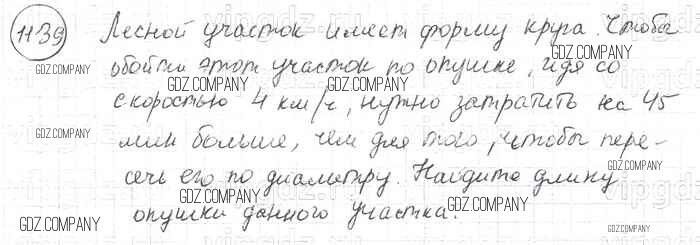 1139 Лесной участок имеет форму круга. Чтобы
обойти этот участок по опушке, идя со
скоростью 4 км/ч, нужно затратить на 45
мин больше, чем для того, чтобы пере-
сечь его по диаметру. Найдите длину
опушки данного участка.
GDZ.COMPANY
GDZ.COMPANY
GDZ.COMPANY
GDZ.COMPANY
GDZ.COMPANY
GDZ.COMPANY
GDZ.COMPANY
GDZ.COMPANY
GDZ.COMPANY
GDZ.COMPANY